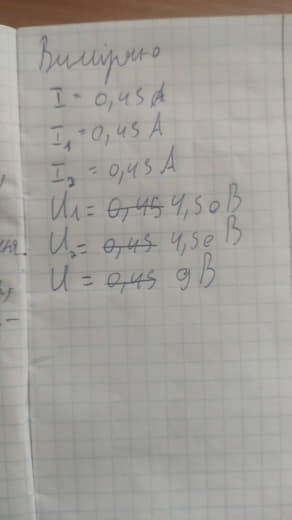 Виміряно
I = 0,45 A
I₁ = 0,45 A
I₂ = 0,45 A
U₁ = 0,45 4,50 В
U₂ = 0,45 4,50 В
U = 0,45 9 В